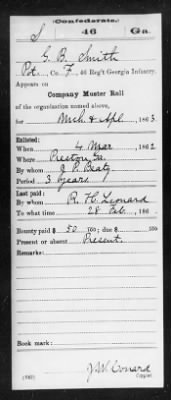 Confederate.
S 46 Ga.
G. B. Smith
Pvt., Co. F, 46 Reg't Georgia Infantry.
Appears on
Company Muster Roll
of the organization named above,
for Mch & Apl, 1863
Enlisted:
When 4 Mar 1862
Where Preston Ga.
By whom J. P. Beaty
Period 3 years
Last paid:
By whom R. H. Leonard
To what time 28 Feb., 186
Bounty paid $ 50 100; due $ 100
Present or absent Present.
Remarks:
Book mark:
J W Conard
(642) Copyist.